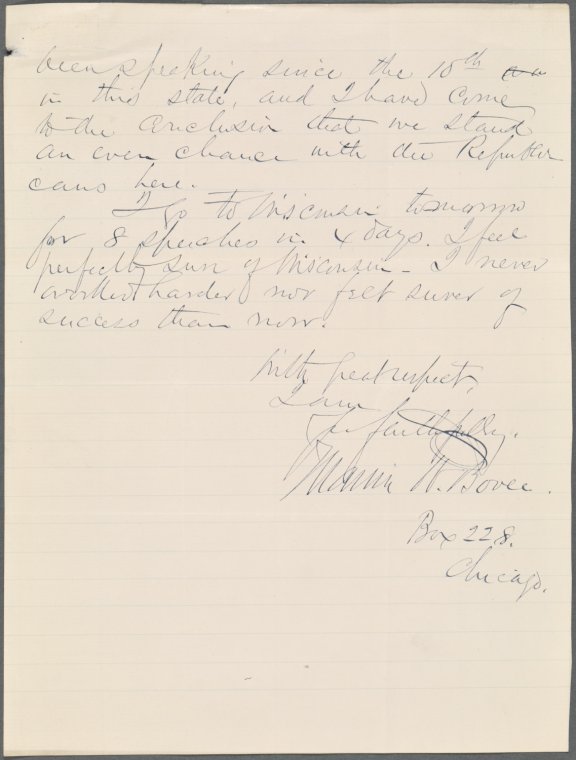 been speaking since the 10th
in this state, and I have come
to the conclusion that we stand
an even chance with the Republi
cans here.
I go to Wisconsin tomorrow
for 8 speeches in 4 days. I feel
perfectly sure of Wisconsin - I never
worked harder nor felt surer of
success than now.
With great respect,
I am
faithfully,
Marvin H. Bovee.
Box 228.
Chicago.